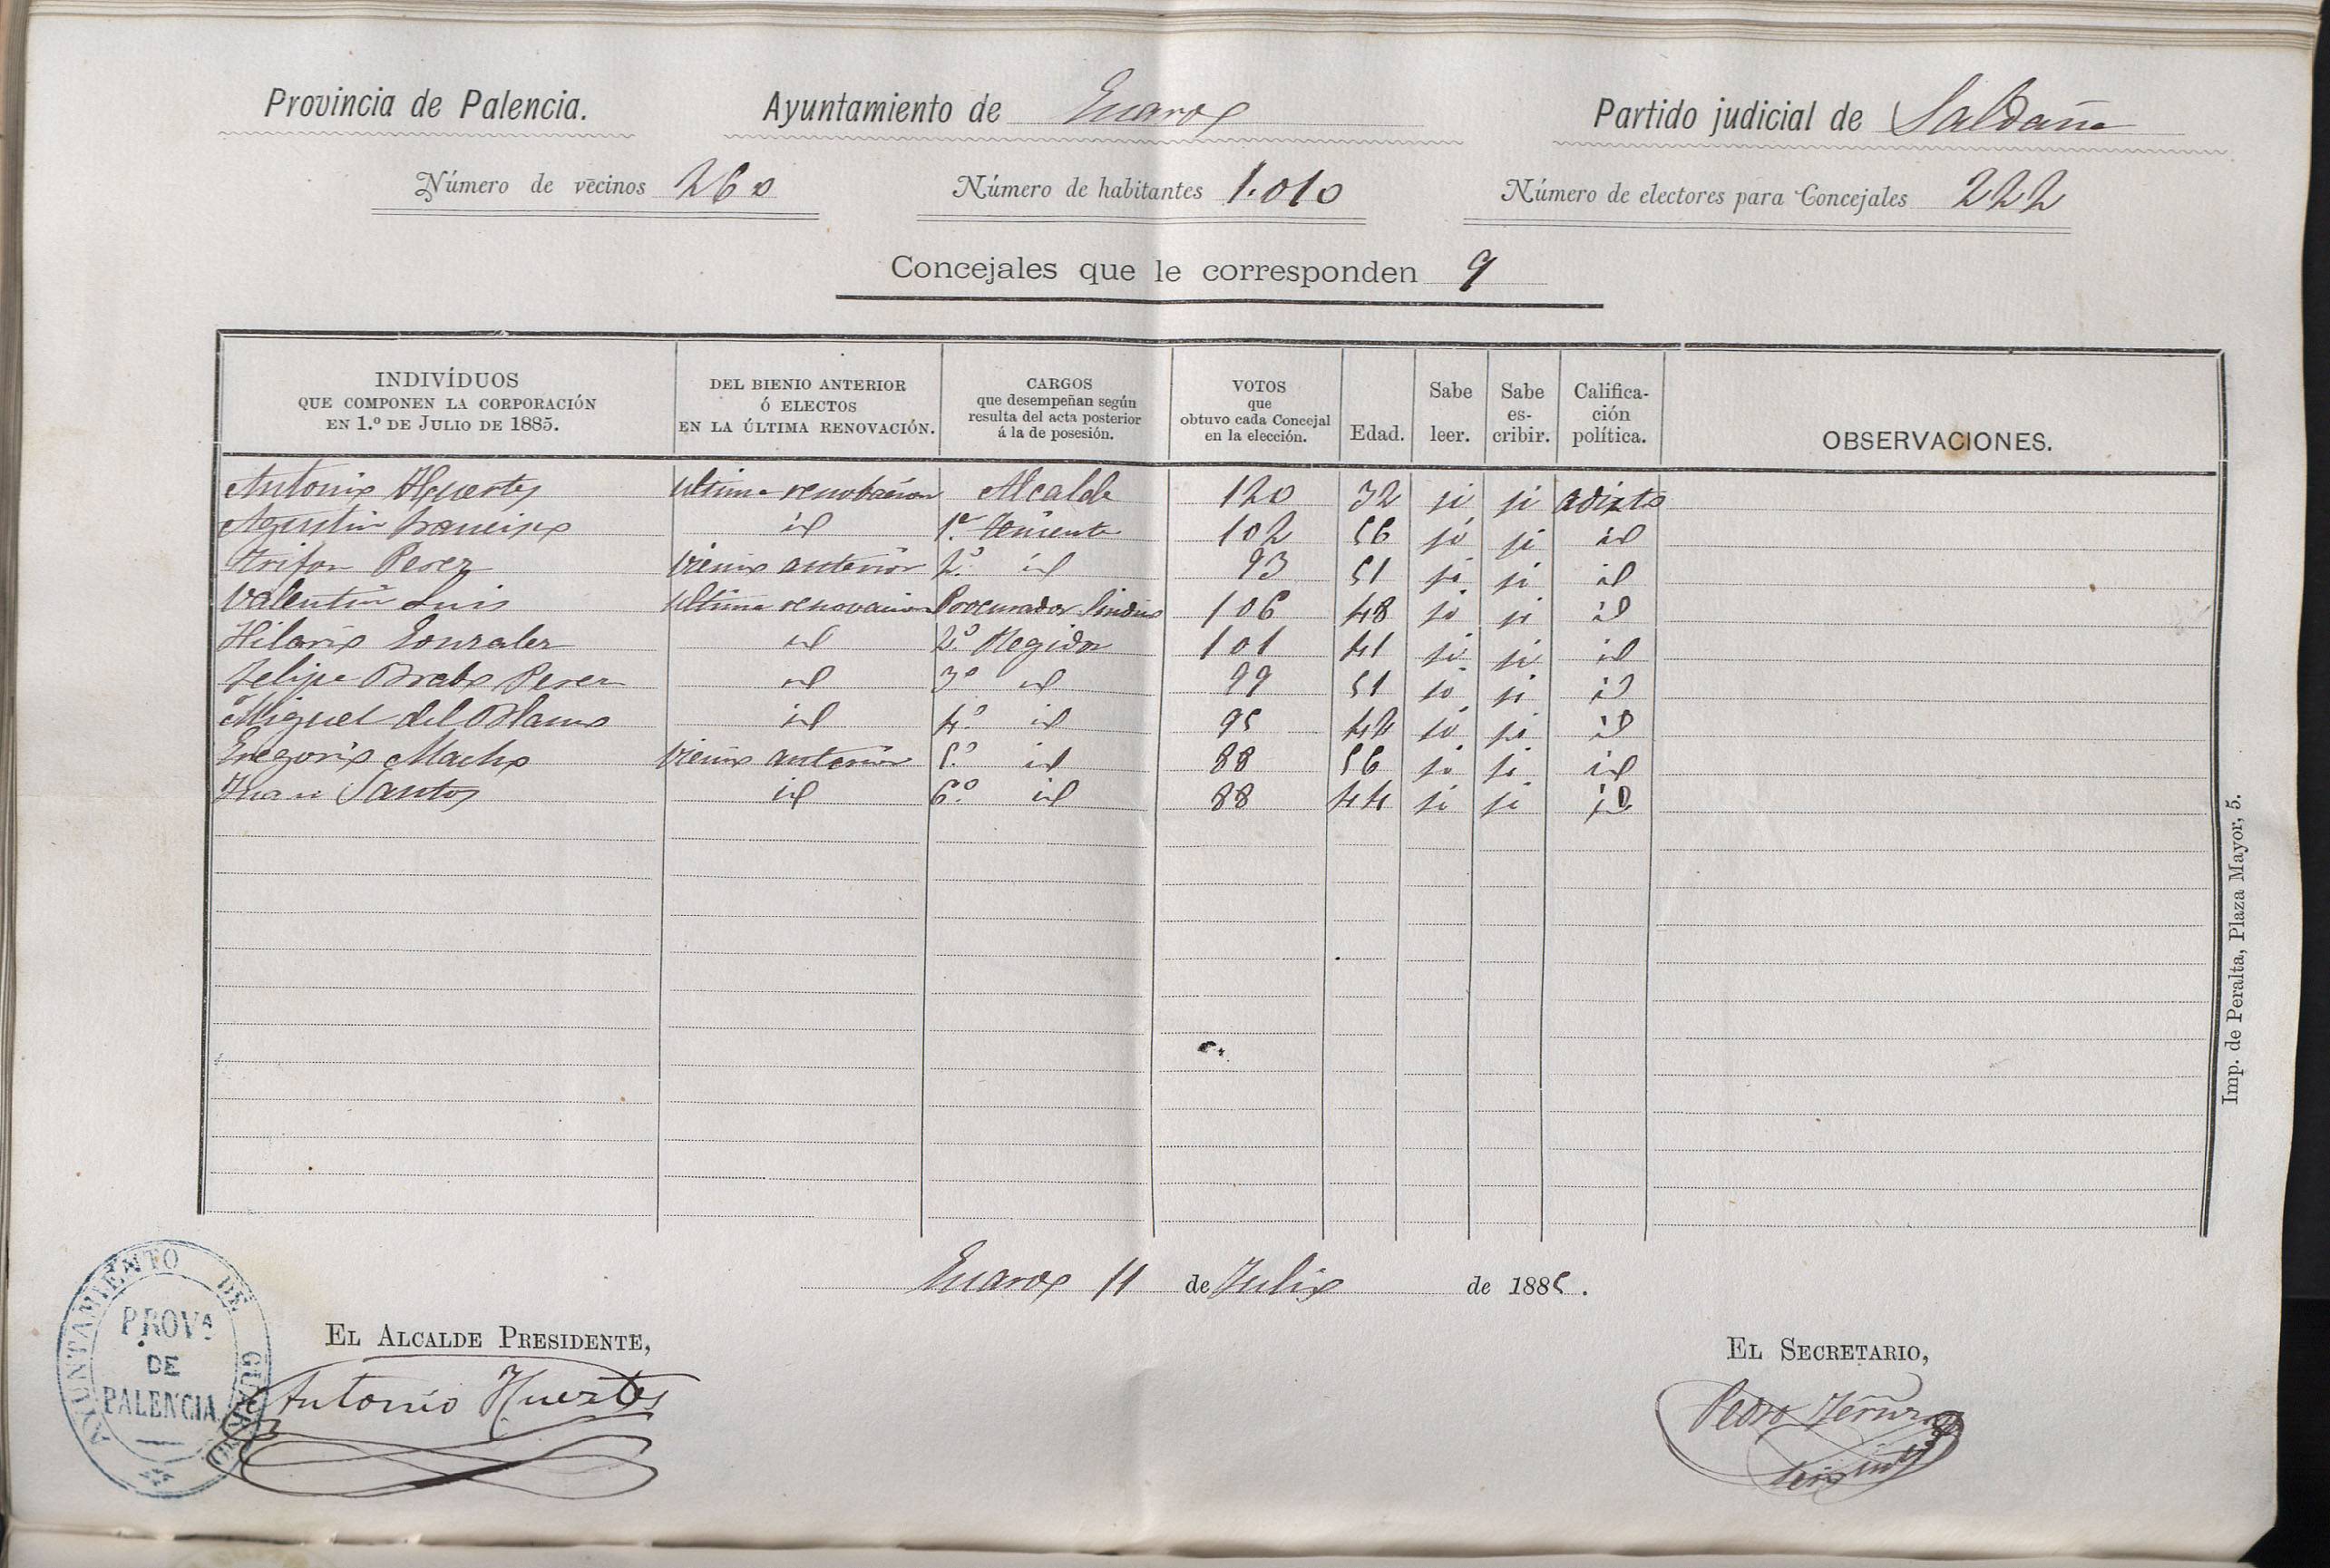 Provincia de Palencia. Ayuntamiento de Guardo Partido judicial de Saldaña
Número de vecinos 260 Número de habitantes 1.010 Número de electores para Concejales 222
Concejales que le corresponden 9
INDIVÍDUOS QUE COMPONEN LA CORPORACIÓN EN 1.º DE JULIO DE 1885. DEL BIENIO ANTERIOR Ó ELECTOS EN LA ÚLTIMA RENOVACIÓN. CARGOS que desempeñan según resulta del acta posterior á la de posesión. VOTOS que obtuvo cada Concejal en la elección. Edad. Sabe leer. Sabe es- cribir. Califica- ción política. OBSERVACIONES.
Antonio Huertes ultima renobacion Alcalde 120 32 si si adicto
Agustin Francisco id 1.er Teniente 102 56 si si id
Trifon Perez vienio anterior 2.º id 93 51 si si id
Valentin Luis ultima renovacion Procurador Sindico 106 48 si si id
Hilario Gonzalez id 2.º Regidor 101 41 si si id
Felipe Brabo Perez id 3º id 99 51 si si id
Miguel del Blanco id 4.º id 95 44 si si id
Gregorio Macho vienio anterior 5.º id 88 56 si si id
Juan Santos id 6.º id 88 44 si si id
Imp. de Peralta, Plaza Mayor, 5.
Guardo 11 de Julio de 1885.
AYUNTAMIENTO DE GUARDO
PROVª
DE
PALENCIA
EL ALCALDE PRESIDENTE,
Antonio Huertes
EL SECRETARIO,
Pedro